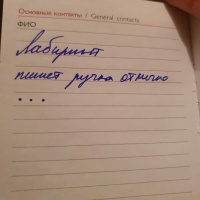 Основные контакты / General contacts
ФИО
Лабиринт
пишет ручка отлично
...